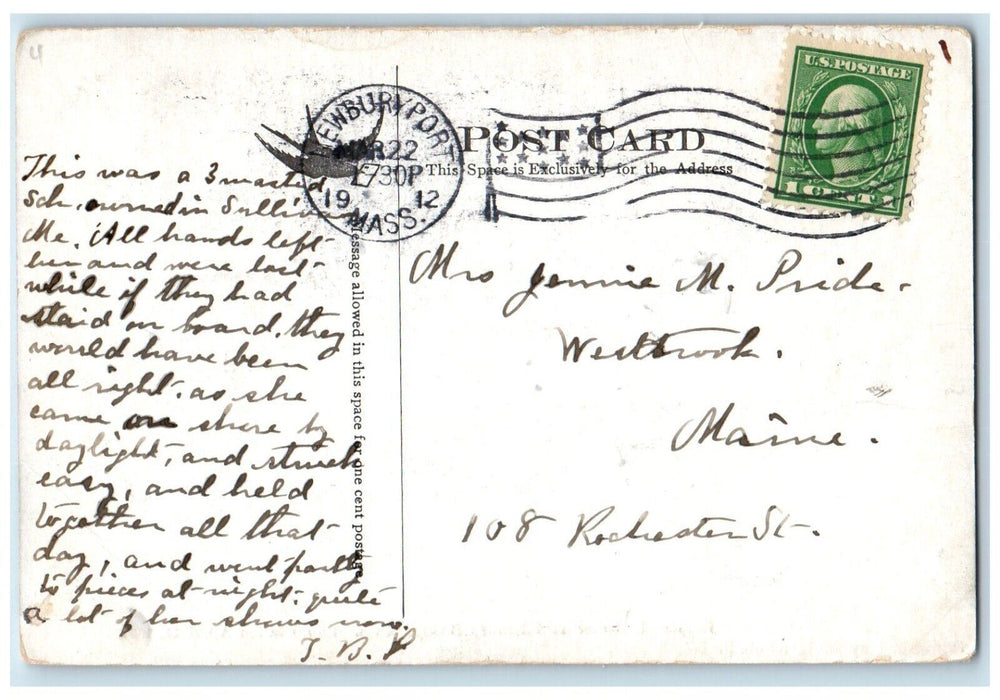 NEWBURYPORT
MAR 22
730P
1912
MASS.
U.S. POSTAGE
1 CENT 1
POST CARD
This Space is Exclusively for the Address
Message allowed in this space for one cent postage.
This was a 3 masted
Sch, owned in Sullivan
Me. All hands left
her and were lost
while if they had
staid on board, they
would have been
all right, as she
came on shore by
daylight, and struck
easy, and held
together all that
day, and went partly
to pieces at night. quite
a lot of her shows now.
J. B. P
Mrs Jennie M. Pride.
Westbrook.
Maine.
108 Rochester St.